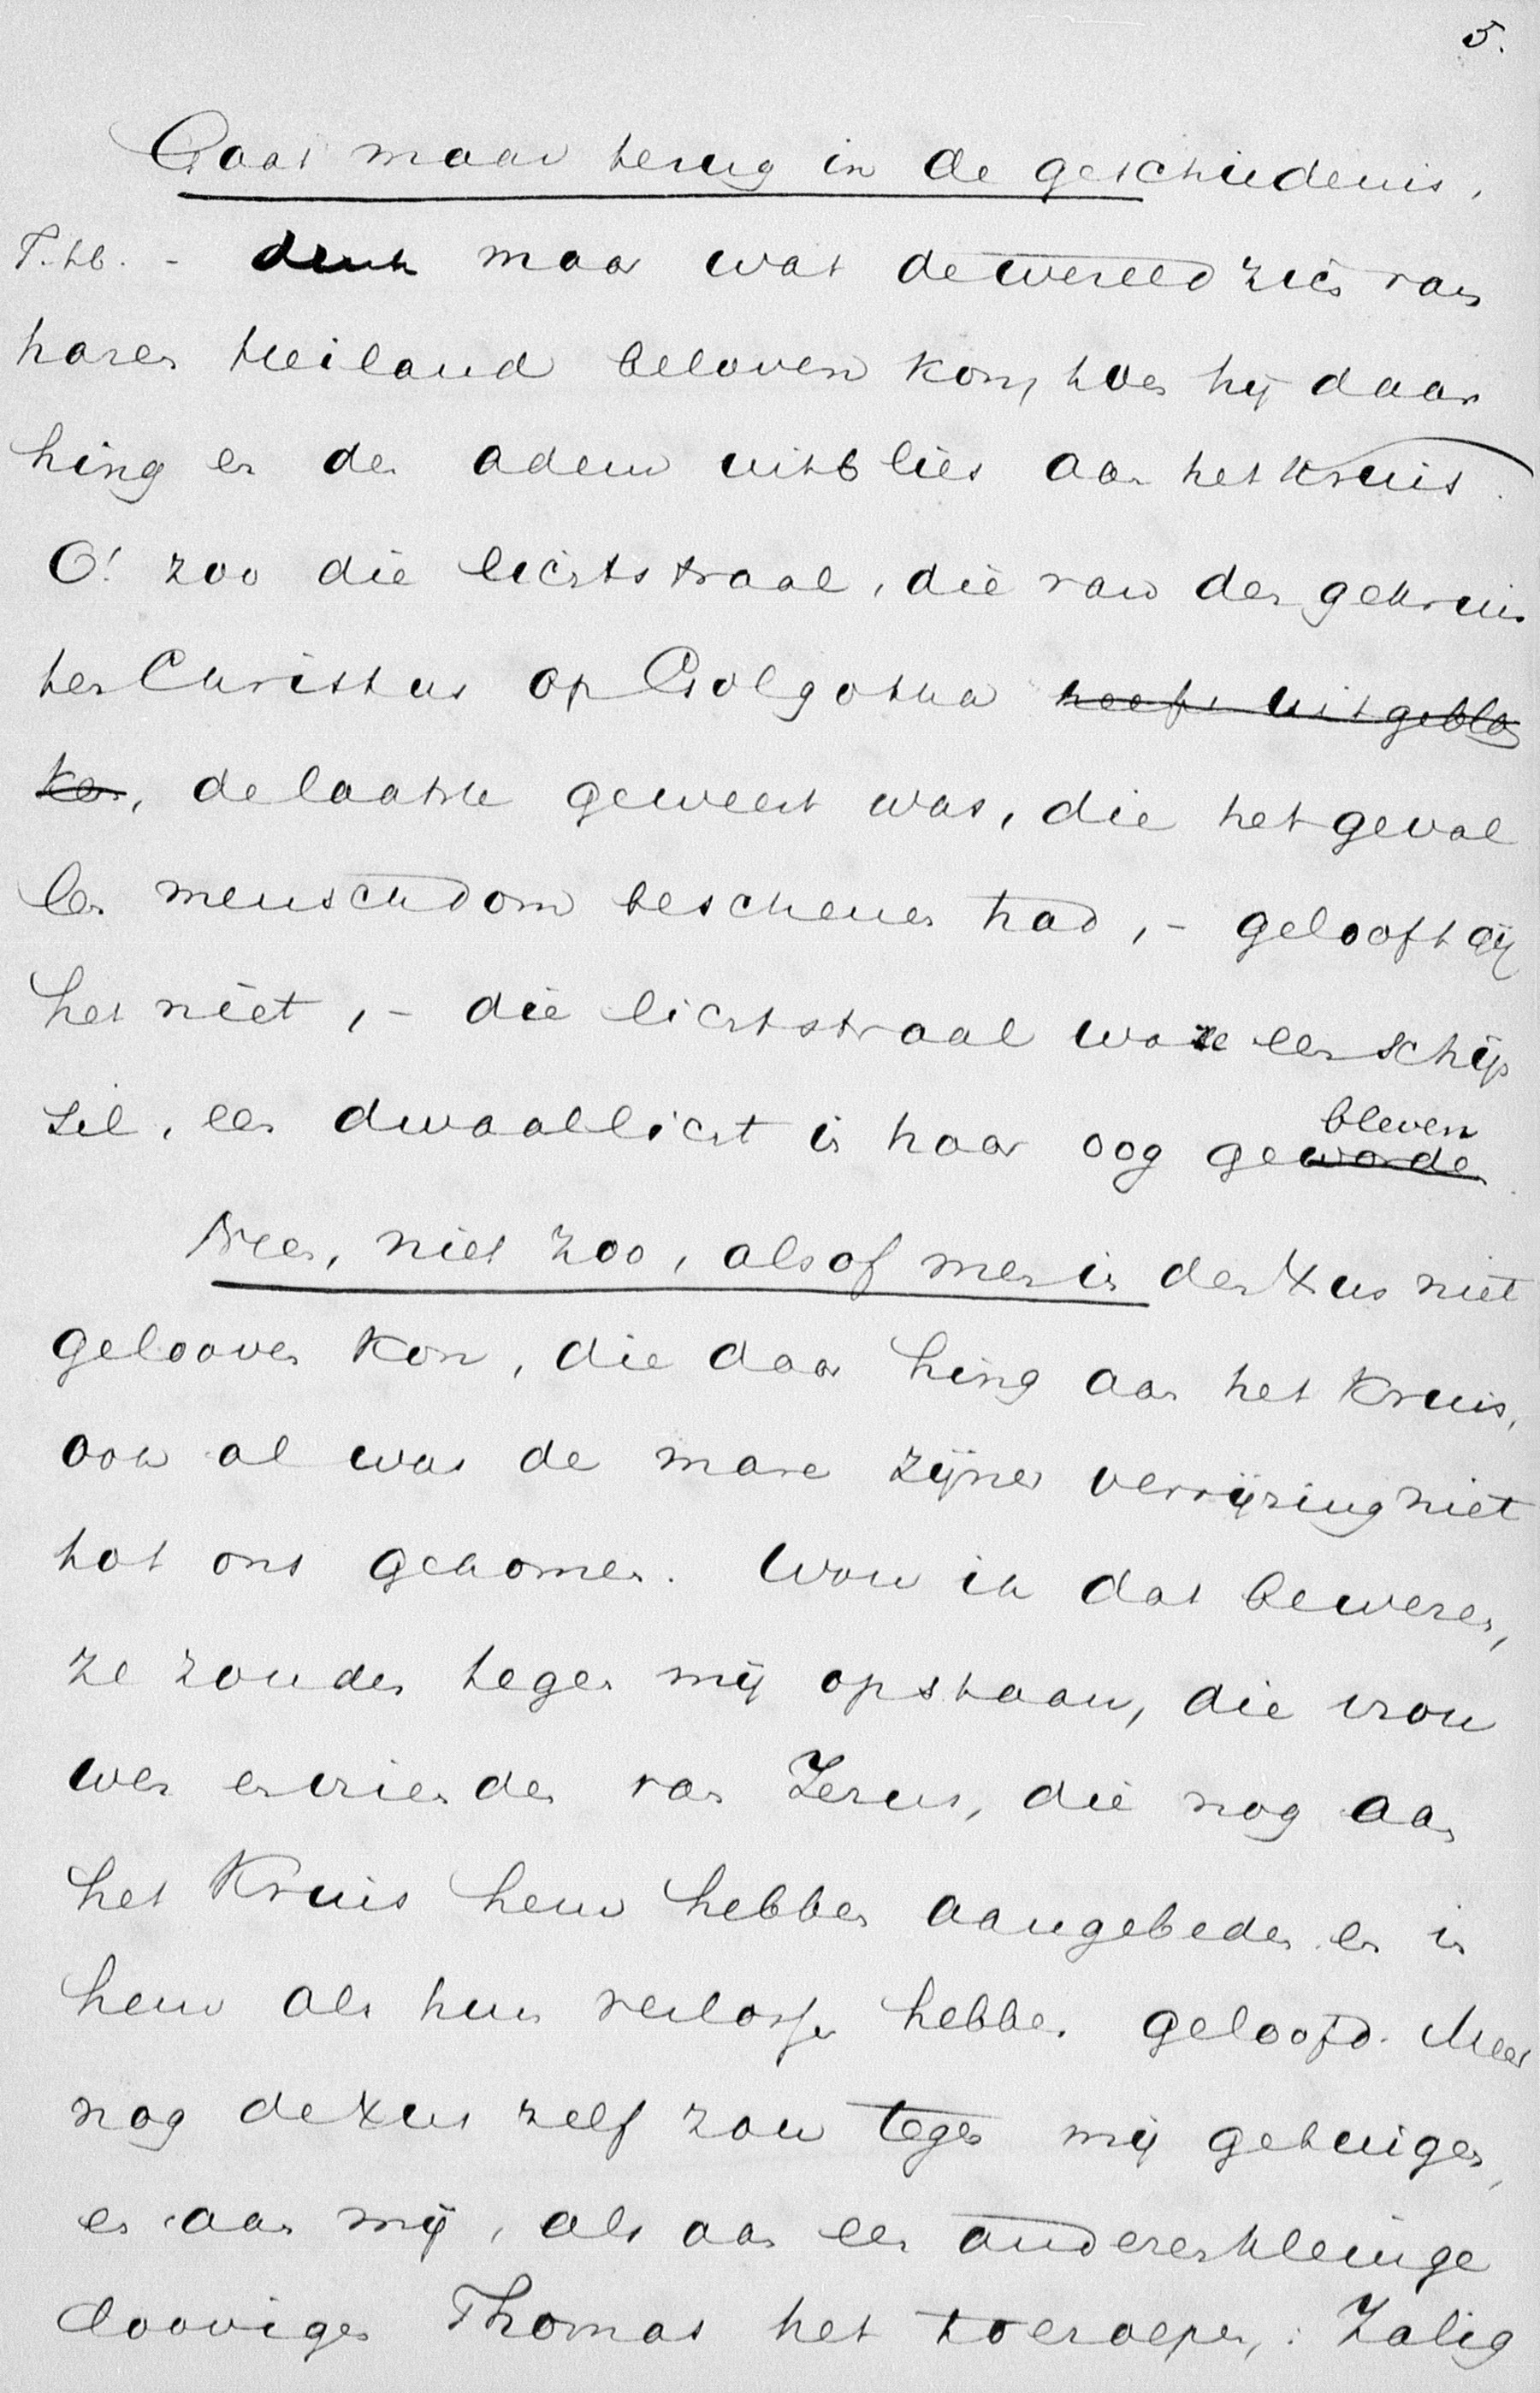 5.
Gaat maar terug in de geschiedenis,
T. hb. - denk maar wat de wereld zich van
haren Heiland beloven kon, toen hij daar
hing en den adem uitblies aan het kruis.
O! zoo die lichtstraal, die van den gekruis
ten Christus op Golgotha heeft uitgeblo
ken, de laatste geweest was, die het geval
len menschdom beschenen had, - gelooft gij
het niet, - die lichtstraal ware een schijn
sel, een dwaallicht in haar oog gebleven
worden.
Neen, niet zoo, alsof men in den Xus niet
gelooven kon, die daar hing aan het kruis,
ook al was de mare zijner verrijzing niet
tot ons gekomen. Wou ik dat beweren,
ze zouden tegen mij opstaan, die vrou
wen en vrienden van Jezus, die nog aan
het Kruis hem hebben aangebeden en in
hem als hun verlosser hebben geloofd. Meer
nog de Xus zelf zou tegen mij getuigen,
en aan mij, als aan een anderen kleinge
looviges Thomas het toeroepen,: Zalig